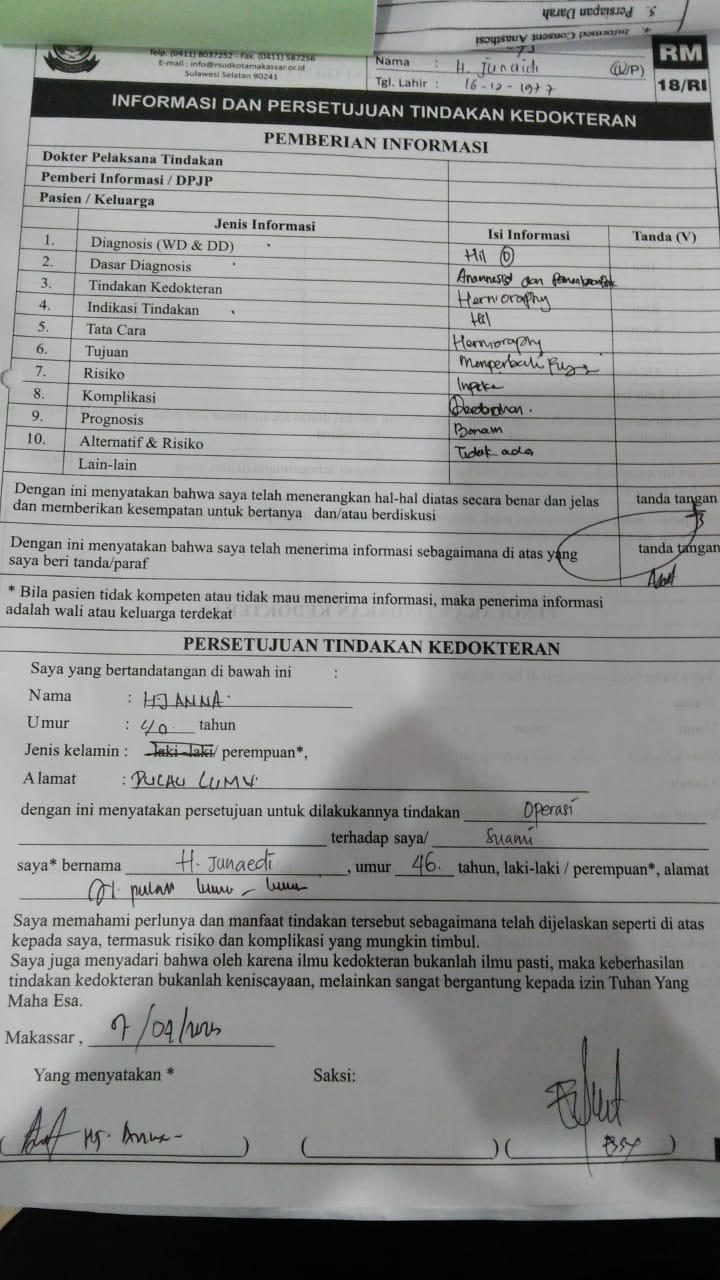 5. Persiapan Darah
4. Informed Consent Anasthesi
Telp. (0411) 8037252 - Fax. (0411) 587256
E-mail : info@rsudkotamakassar.or.id
Sulawesi Selatan 90241
Nama : H. Junaidi (L/P)
Tgl. Lahir : 16-12-1977
RM
18/RI
INFORMASI DAN PERSETUJUAN TINDAKAN KEDOKTERAN
PEMBERIAN INFORMASI
Dokter Pelaksana Tindakan
Pemberi Informasi / DPJP
Pasien / Keluarga
Jenis Informasi Isi Informasi Tanda (V)
1. Diagnosis (WD & DD) Hil
2. Dasar Diagnosis Anamnesis dan
3. Tindakan Kedokteran Hernioraphy
4. Indikasi Tindakan Hil
5. Tata Cara Hernioraphy
6. Tujuan Memperbaiki
7. Risiko
8. Komplikasi Perdarahan.
9. Prognosis Bonam
10. Alternatif & Risiko Tidak ada
Lain-lain
Dengan ini menyatakan bahwa saya telah menerangkan hal-hal diatas secara benar dan jelas tanda tangan
dan memberikan kesempatan untuk bertanya dan/atau berdiskusi
Dengan ini menyatakan bahwa saya telah menerima informasi sebagaimana di atas yang tanda tangan
saya beri tanda/paraf
* Bila pasien tidak kompeten atau tidak mau menerima informasi, maka penerima informasi
adalah wali atau keluarga terdekat
PERSETUJUAN TINDAKAN KEDOKTERAN
Saya yang bertandatangan di bawah ini :
Nama : HJ ANNA
Umur : 40 tahun
Jenis kelamin : laki-laki/ perempuan*,
Alamat : PULAU LUMU
dengan ini menyatakan persetujuan untuk dilakukannya tindakan Operasi
terhadap saya/ Suami
saya* bernama H. Junaedi, umur 46. tahun, laki-laki / perempuan*, alamat
Jl. pulau lumu - lumu
Saya memahami perlunya dan manfaat tindakan tersebut sebagaimana telah dijelaskan seperti di atas
kepada saya, termasuk risiko dan komplikasi yang mungkin timbul.
Saya juga menyadari bahwa oleh karena ilmu kedokteran bukanlah ilmu pasti, maka keberhasilan
tindakan kedokteran bukanlah keniscayaan, melainkan sangat bergantung kepada izin Tuhan Yang
Maha Esa.
Makassar,
Yang menyatakan * Saksi:
( Hj. Anna ) ( ) ( )